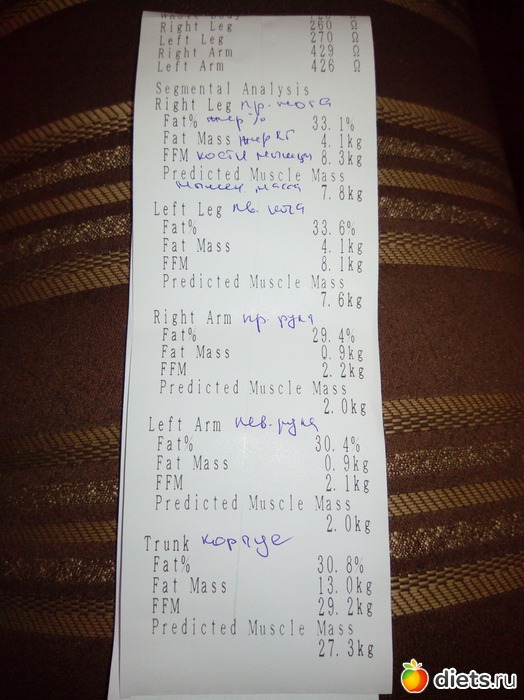 Right Leg 260 Ω
Left Leg 270 Ω
Right Arm 429 Ω
Left Arm 426 Ω
Segmental Analysis
Right Leg пр. нога
Fat% жир % 33.1%
Fat Mass жир кг 4.1kg
FFM кости мышцы 8.3kg
Predicted Muscle Mass
масса 7.8kg
Left Leg лв. нога
Fat% 33.6%
Fat Mass 4.1kg
FFM 8.1kg
Predicted Muscle Mass
7.6kg
Right Arm пр. рука
Fat% 29.4%
Fat Mass 0.9kg
FFM 2.2kg
Predicted Muscle Mass
2.0kg
Left Arm лев. рука
Fat% 30.4%
Fat Mass 0.9kg
FFM 2.1kg
Predicted Muscle Mass
2.0kg
Trunk корпус
Fat% 30.8%
Fat Mass 13.0kg
FFM 29.2kg
Predicted Muscle Mass
27.3kg
diets.ru